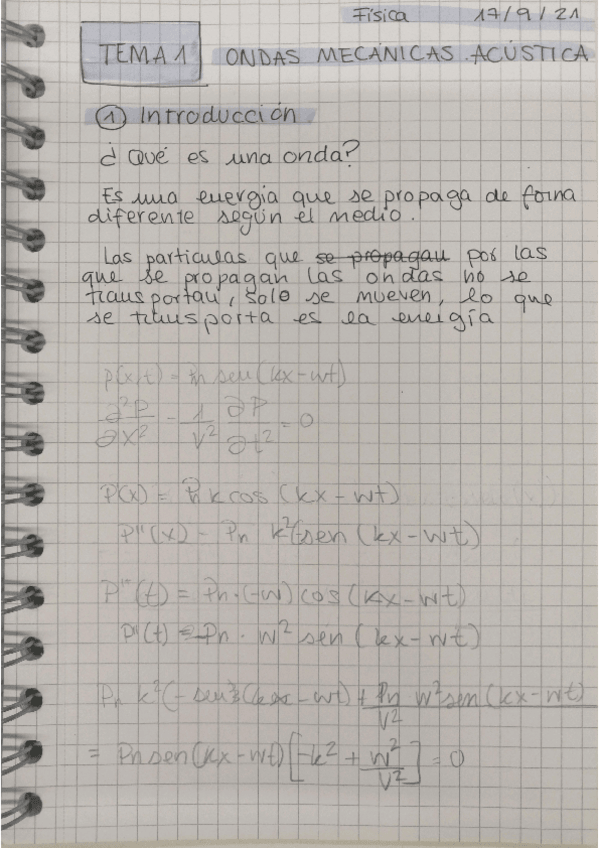 Física 17/9/21
TEMA 1 ONDAS MECÁNICAS. ACÚSTICA
① Introducción
¿ Qué es una onda?
Es una energía que se propaga de forma
diferente según el medio.
Las partículas que se propagan por las
que se propagan las ondas no se
transportan, solo se mueven, lo que
se transporta es la energía
P(x,t) = Pm sen(kx-wt)
∂²P/∂x² - 1/V² ∂P/∂t² = 0
P(x) = Pm k cos (kx-wt)
P''(x) - Pn k²(-sen (kx-wt)
P'(t) = Pn·(-w) cos(kx-wt)
P''(t) = -Pn · w² sen (kx-wt)
Pn k²(-sen(kx-wt) + Pn/V² w² sen (kx-wt)
= Pn sen(kx-wt) [-k² + w²/V²] = 0